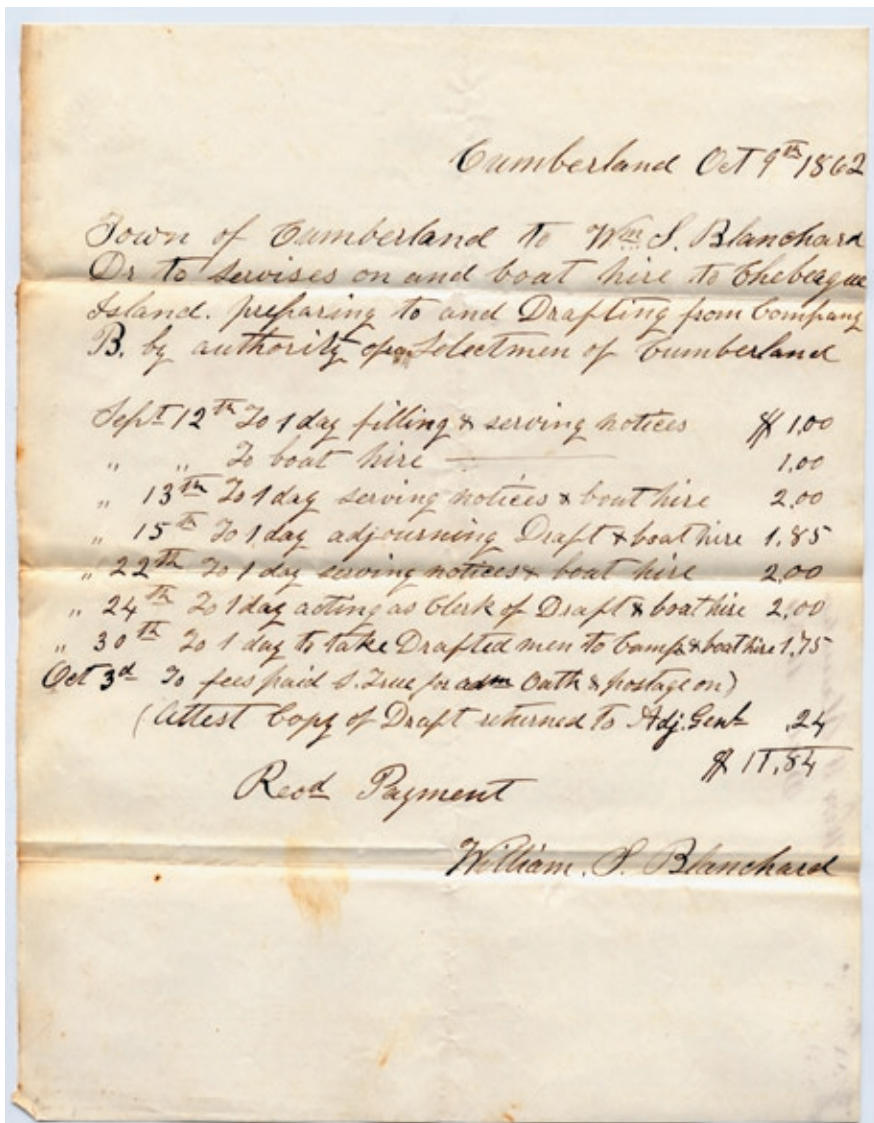 Cumberland Oct 9th 1862
Town of Cumberland to Wm S. Blanchard
Dr to servises on and boat hire to Chebeague
Island. preparing to and Drafting from Company
B. by authority of Selectmen of Cumberland
Sept 12th To 1 day filling & serving notices $ 1.00
" " To boat hire 1.00
" 13th To 1 day serving notices & boat hire 2.00
" 15th To 1 day adjourning Draft & boat hire 1.85
" 22th To 1 day serving notices & boat hire 2.00
" 24th To 1 day acting as Clerk of Draft & boat hire 2.00
" 30th To 1 day to take Drafted men to Camp & boat hire 1.75
Oct 3d To fees paid S. True for adm Oath & postage on)
(Attest Copy of Draft returned to Adj. Genl .24
$ 11.84
Recd Payment
William. S. Blanchard